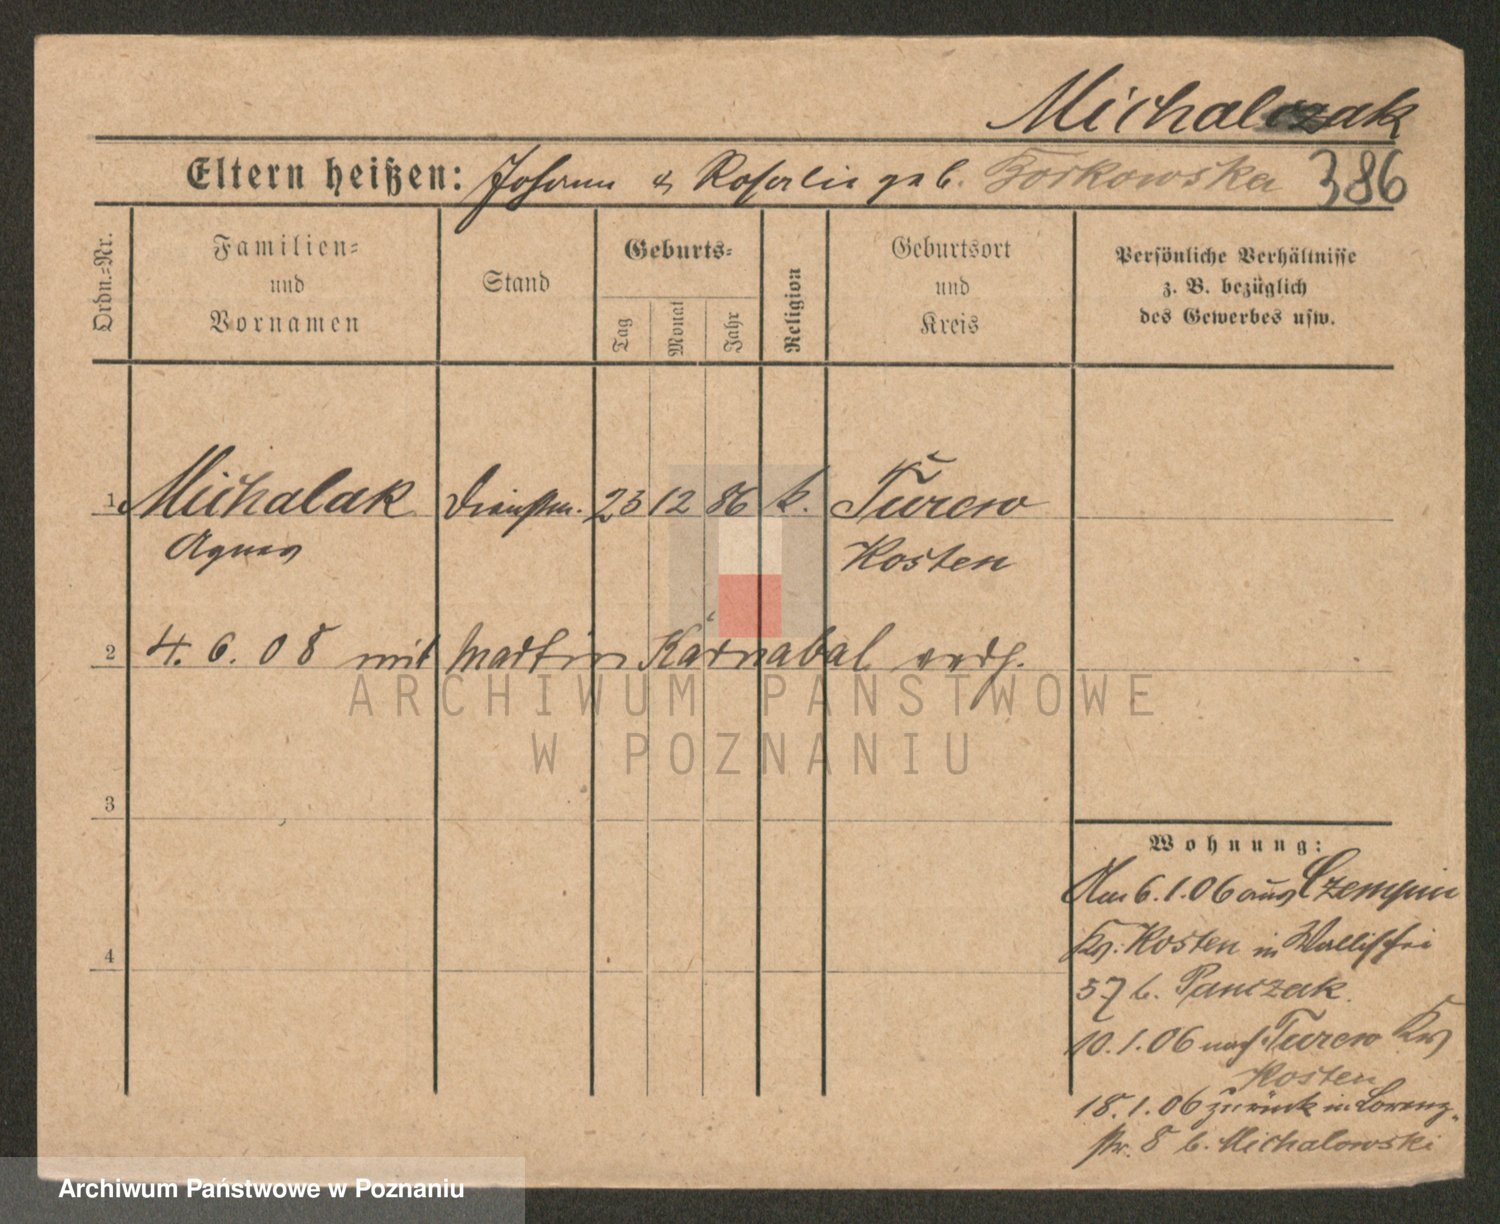 Michalczak
Eltern heißen: Johann & Rosalie geb. Borkowska 386
Ordn.-Nr.
Familien-
und
Vornamen
Stand
Geburts-
Tag
Monat
Jahr
Religion
Geburtsort
und
Kreis
Persönliche Verhältnisse
z. B. bezüglich
des Gewerbes usw.
1 Michalak Dienstm. 23 12 86 k. Turew
Agnes Kosten
2 4. 6. 08 mit Martin Karnabal verh.
3
4
Wohnung:
Am 6.1.06 aus Czempin
Kr. Kosten in Wallischei
57 b. Panczak.
10.1.06 nach Turew Kr
Kosten
18.1.06 zurück in Lorenz-
str. 8 b. Michalowski
ARCHIWUM PAŃSTWOWE
W POZNANIU
Archiwum Państwowe w Poznaniu